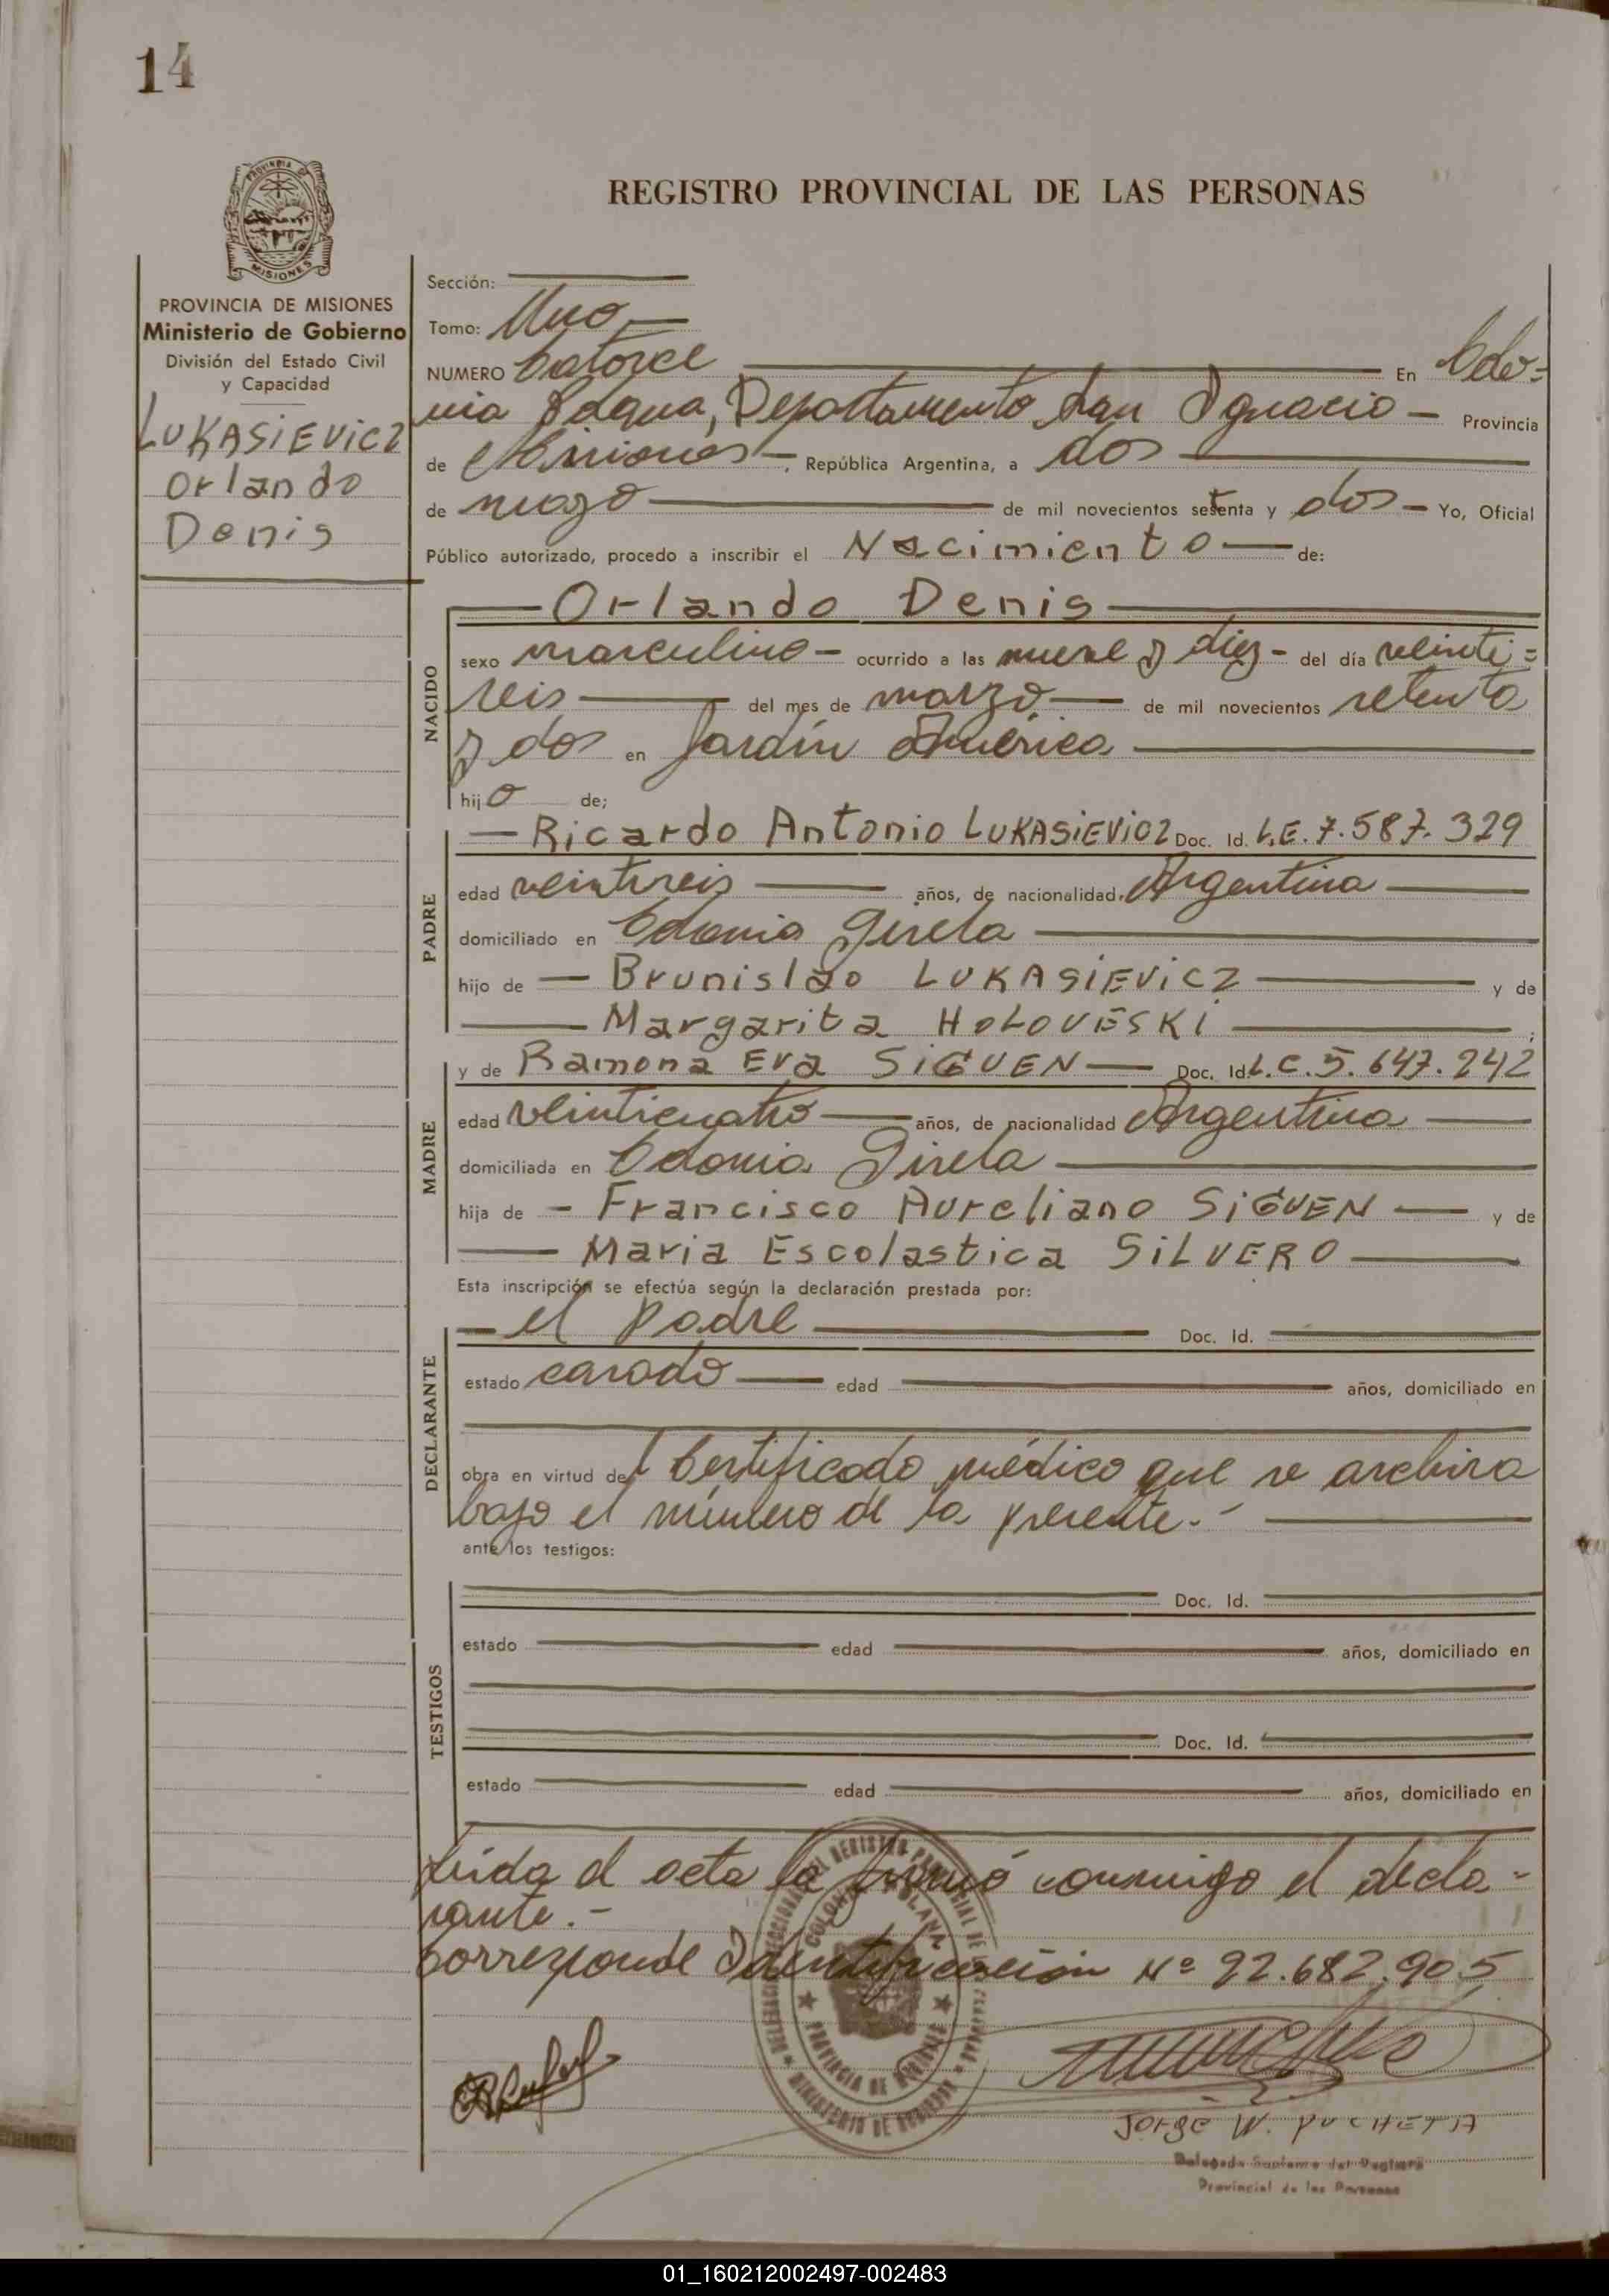 14
REGISTRO PROVINCIAL DE LAS PERSONAS
PROVINCIA DE MISIONES
MISIONES
PROVINCIA DE MISIONES
Ministerio de Gobierno
División del Estado Civil
y Capacidad
LUKASIEVICZ
Orlando
Denis
Sección:
Tomo: Uno
NUMERO Catorce En Colo=
nia Polana, Departamento San Ignacio Provincia
de Misiones, República Argentina, a dos
de mayo de mil novecientos setenta y dos Yo, Oficial
Público autorizado, procedo a inscribir el Nacimiento de:
NACIDO
Orlando Denis
sexo masculino ocurrido a las nueve y diez del día veinti=
seis del mes de marzo de mil novecientos setenta
y dos en Jardín América
hijo de;
PADRE
Ricardo Antonio LUKASIEVICZ Doc. Id. L.E. 7.587.329
edad veintiseis años, de nacionalidad Argentina
domiciliado en Colonia Gisela
hijo de Brunislao LUKASIEVICZ y de
Margarita HOLOVESKI ;
MADRE
y de Ramona Eva SIGUEN Doc. Id. L.C. 5.647.242
edad veinticuatro años, de nacionalidad Argentina
domiciliada en Colonia Gisela
hija de Francisco Aureliano SIGUEN y de
Maria Escolastica SILVERO
Esta inscripción se efectúa según la declaración prestada por:
DECLARANTE
el padre Doc. Id.
estado casado edad años, domiciliado en
obra en virtud del Certificado médico que se archiva
bajo el número de la presente.-
ante los testigos:
TESTIGOS
Doc. Id.
estado edad años, domiciliado en
Doc. Id.
estado edad años, domiciliado en
Leida el acta la firmó conmigo el decla-
rante.-
Corresponde Identificación Nº 22.682.905
COLONIA POLANA
PROVINCIA DE MISIONES
MINISTERIO DE GOBIERNO
Jorge W. PUCHETA
Delegado Suplente del Registro
Provincial de las Personas
01_160212002497-002483